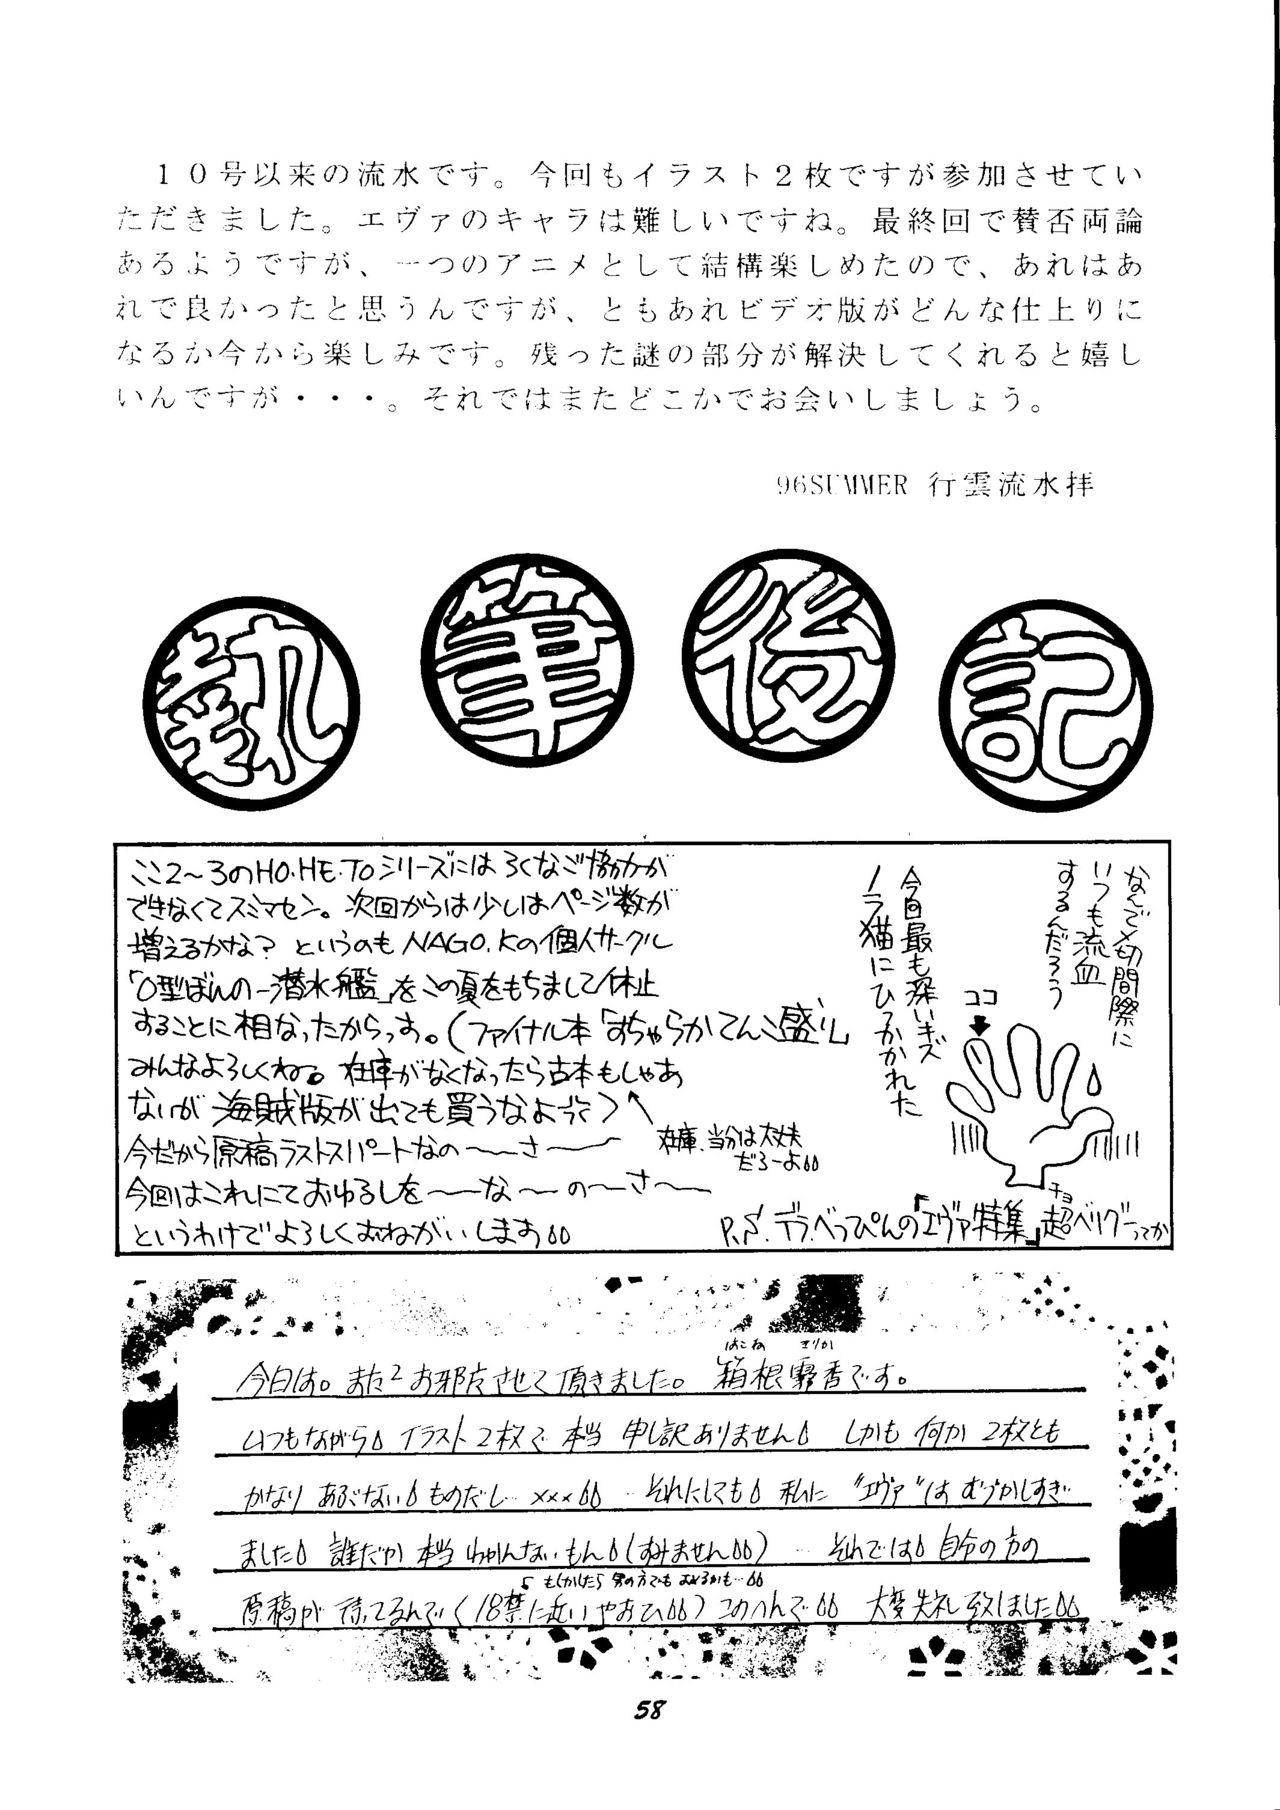 １０号以来の流水です。今回もイラスト２枚ですが参加させてい
ただきました。エヴァのキャラは難しいですね。最終回で賛否両論
あるようですが、一つのアニメとして結構楽しめたので、あれはあ
れで良かったと思うんですが、ともあれビデオ版がどんな仕上りに
なるか今から楽しみです。残った謎の部分が解決してくれると嬉し
いんですが・・・。それではまたどこかでお会いしましょう。
96SUMMER 行雲流水拝
執筆後記
ここ2〜3のHO・HE・TOシリーズにはろくなご協力が
できなくてスミマセン。次回からは少しはページ数が
増えるかな? というのもNAGO.Kの個人サークル
「O型ぼんの一潜水艦」をこの夏をもちまして休止
することに相なったからっす。(ファイナル本「おちゃらかてんこ盛り」
みんなよろしくね。在庫がなくなったら古本もしゃあ
ないが海賊版が出ても買うなよ
在庫、当分は大丈夫
だろーよ
今だから原稿ラストスパートなの〜さ〜
今回はこれにておゆるしを〜な〜の〜さ〜
というわけでよろしくおねがいします
なんで〆切間際に
いつも流血
するんだろう
今回最も深いキズ
ノラ猫にひっかかれた
ココ
P.S.デラべっぴんの「エヴァ特集」超ベリグーってか
チョ
はこね きりか
今日は。また2お邪魔させて頂きました。箱根霧香です。
いつもながら イラスト2枚で 本当 申し訳ありません しかも 何か 2枚とも
かなり あぶない ものだし… ××× …それにしても 私に "エヴァ"は むづかしすぎ
ました 誰だか 本当 わかんないもん(すみません) …それでは 自分の方の
もしかしたら 男の方でも およるかも…
原稿が 待ってるんで(18禁に近いやおひ)このへんで 大変失礼致しました
58